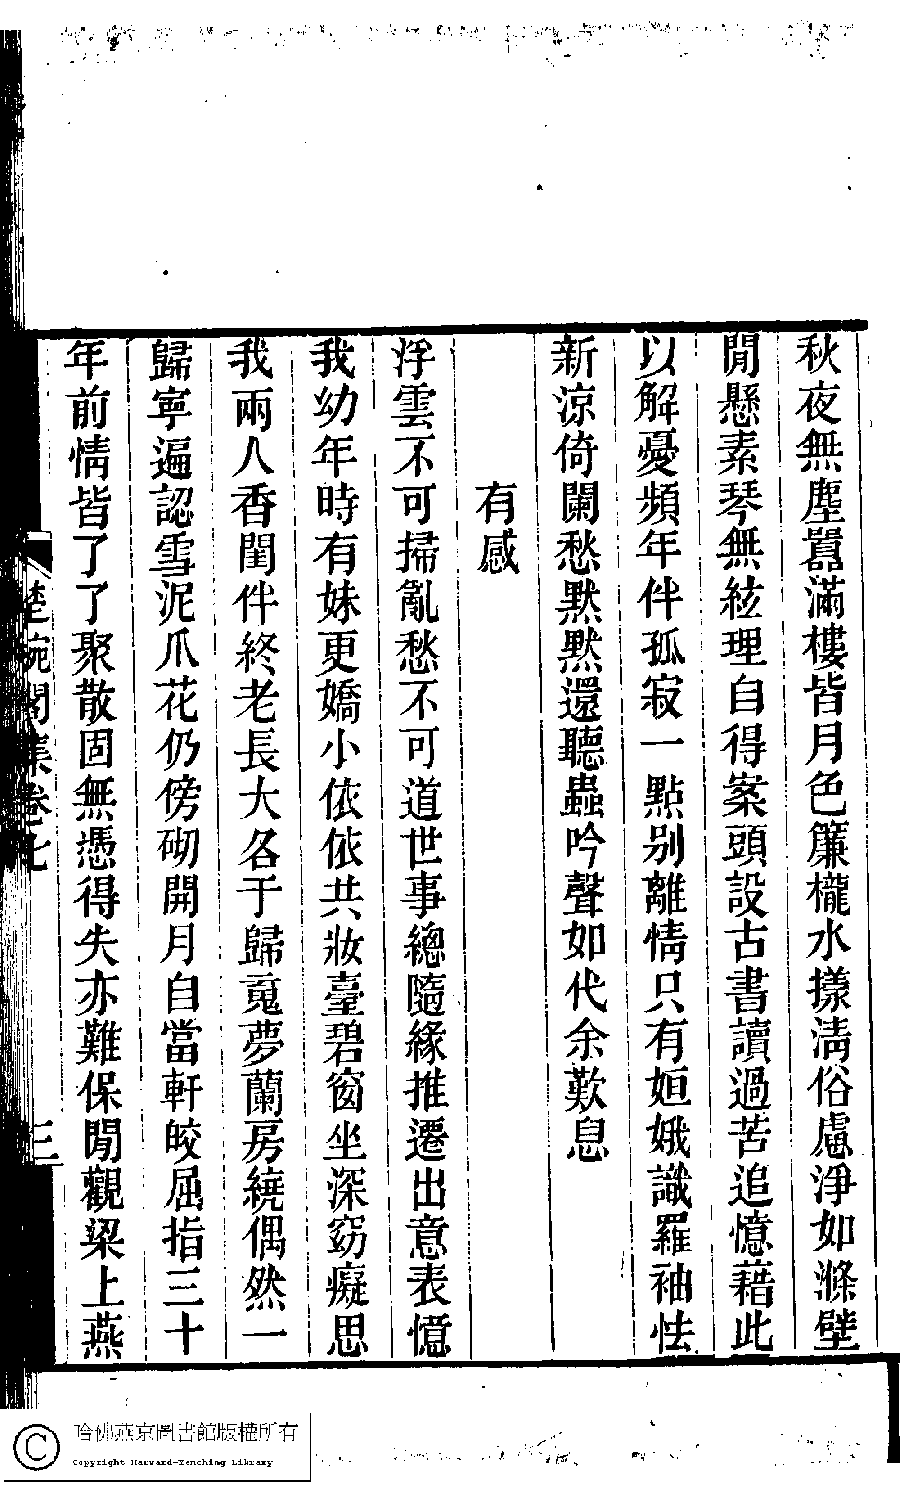 秋夜無塵囂滿樓皆月色簾櫳水㨾淸俗慮淨如滌壁
閒懸素琴無絃理自得案頭設古書讀過苦追憶藉此
以解憂頻年伴孤寂一點别離情只有姮娥識羅袖怯
新涼倚闌愁默默還聽蟲吟聲如代余歎息
有感
浮雲不可掃亂愁不可道世事總隨緣推遷出意表憶
我幼年時有妹更嬌小依依共妝臺碧窗坐深窈癡思
我兩人香閨伴終老長大各于歸䰟夢蘭房繞偶然一
歸寧遍認雪泥爪花仍傍砌開月自當軒皎屈指三十
年前情皆了了聚散固無憑得失亦難保閒觀梁上燕
楚畹閣集卷七
三
哈佛燕京圖書館版權所有
Copyright Harvard-Yenching Library